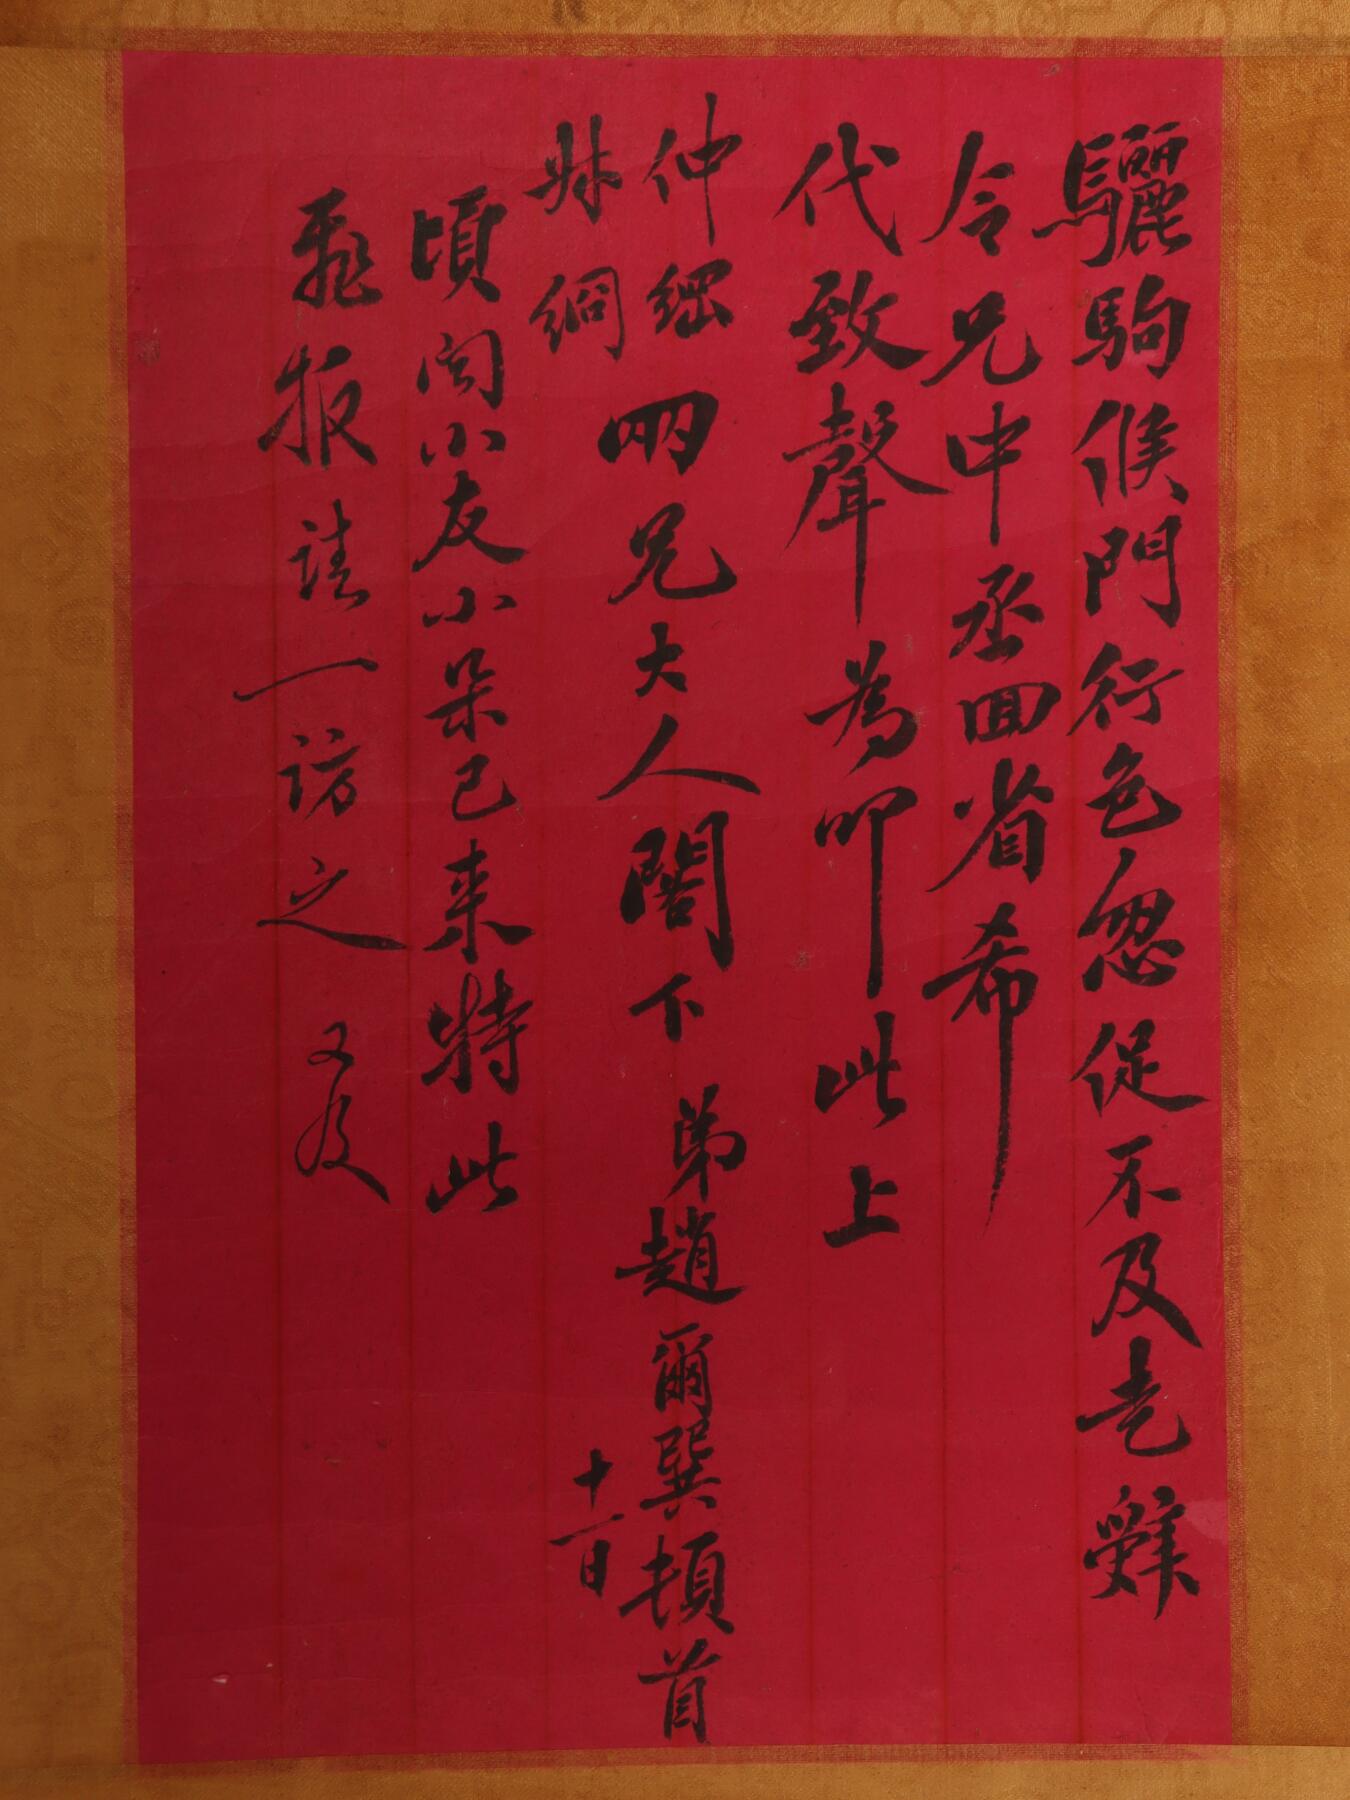 驪駒候門行色忽促不及走辭
令兄中丞回省希
代致聲為叩此上
仲
叔絅 兩兄大人閣下 弟趙爾巽頓首
十一日
頃聞小友小朵已來特此
飛報請一訪之 又及